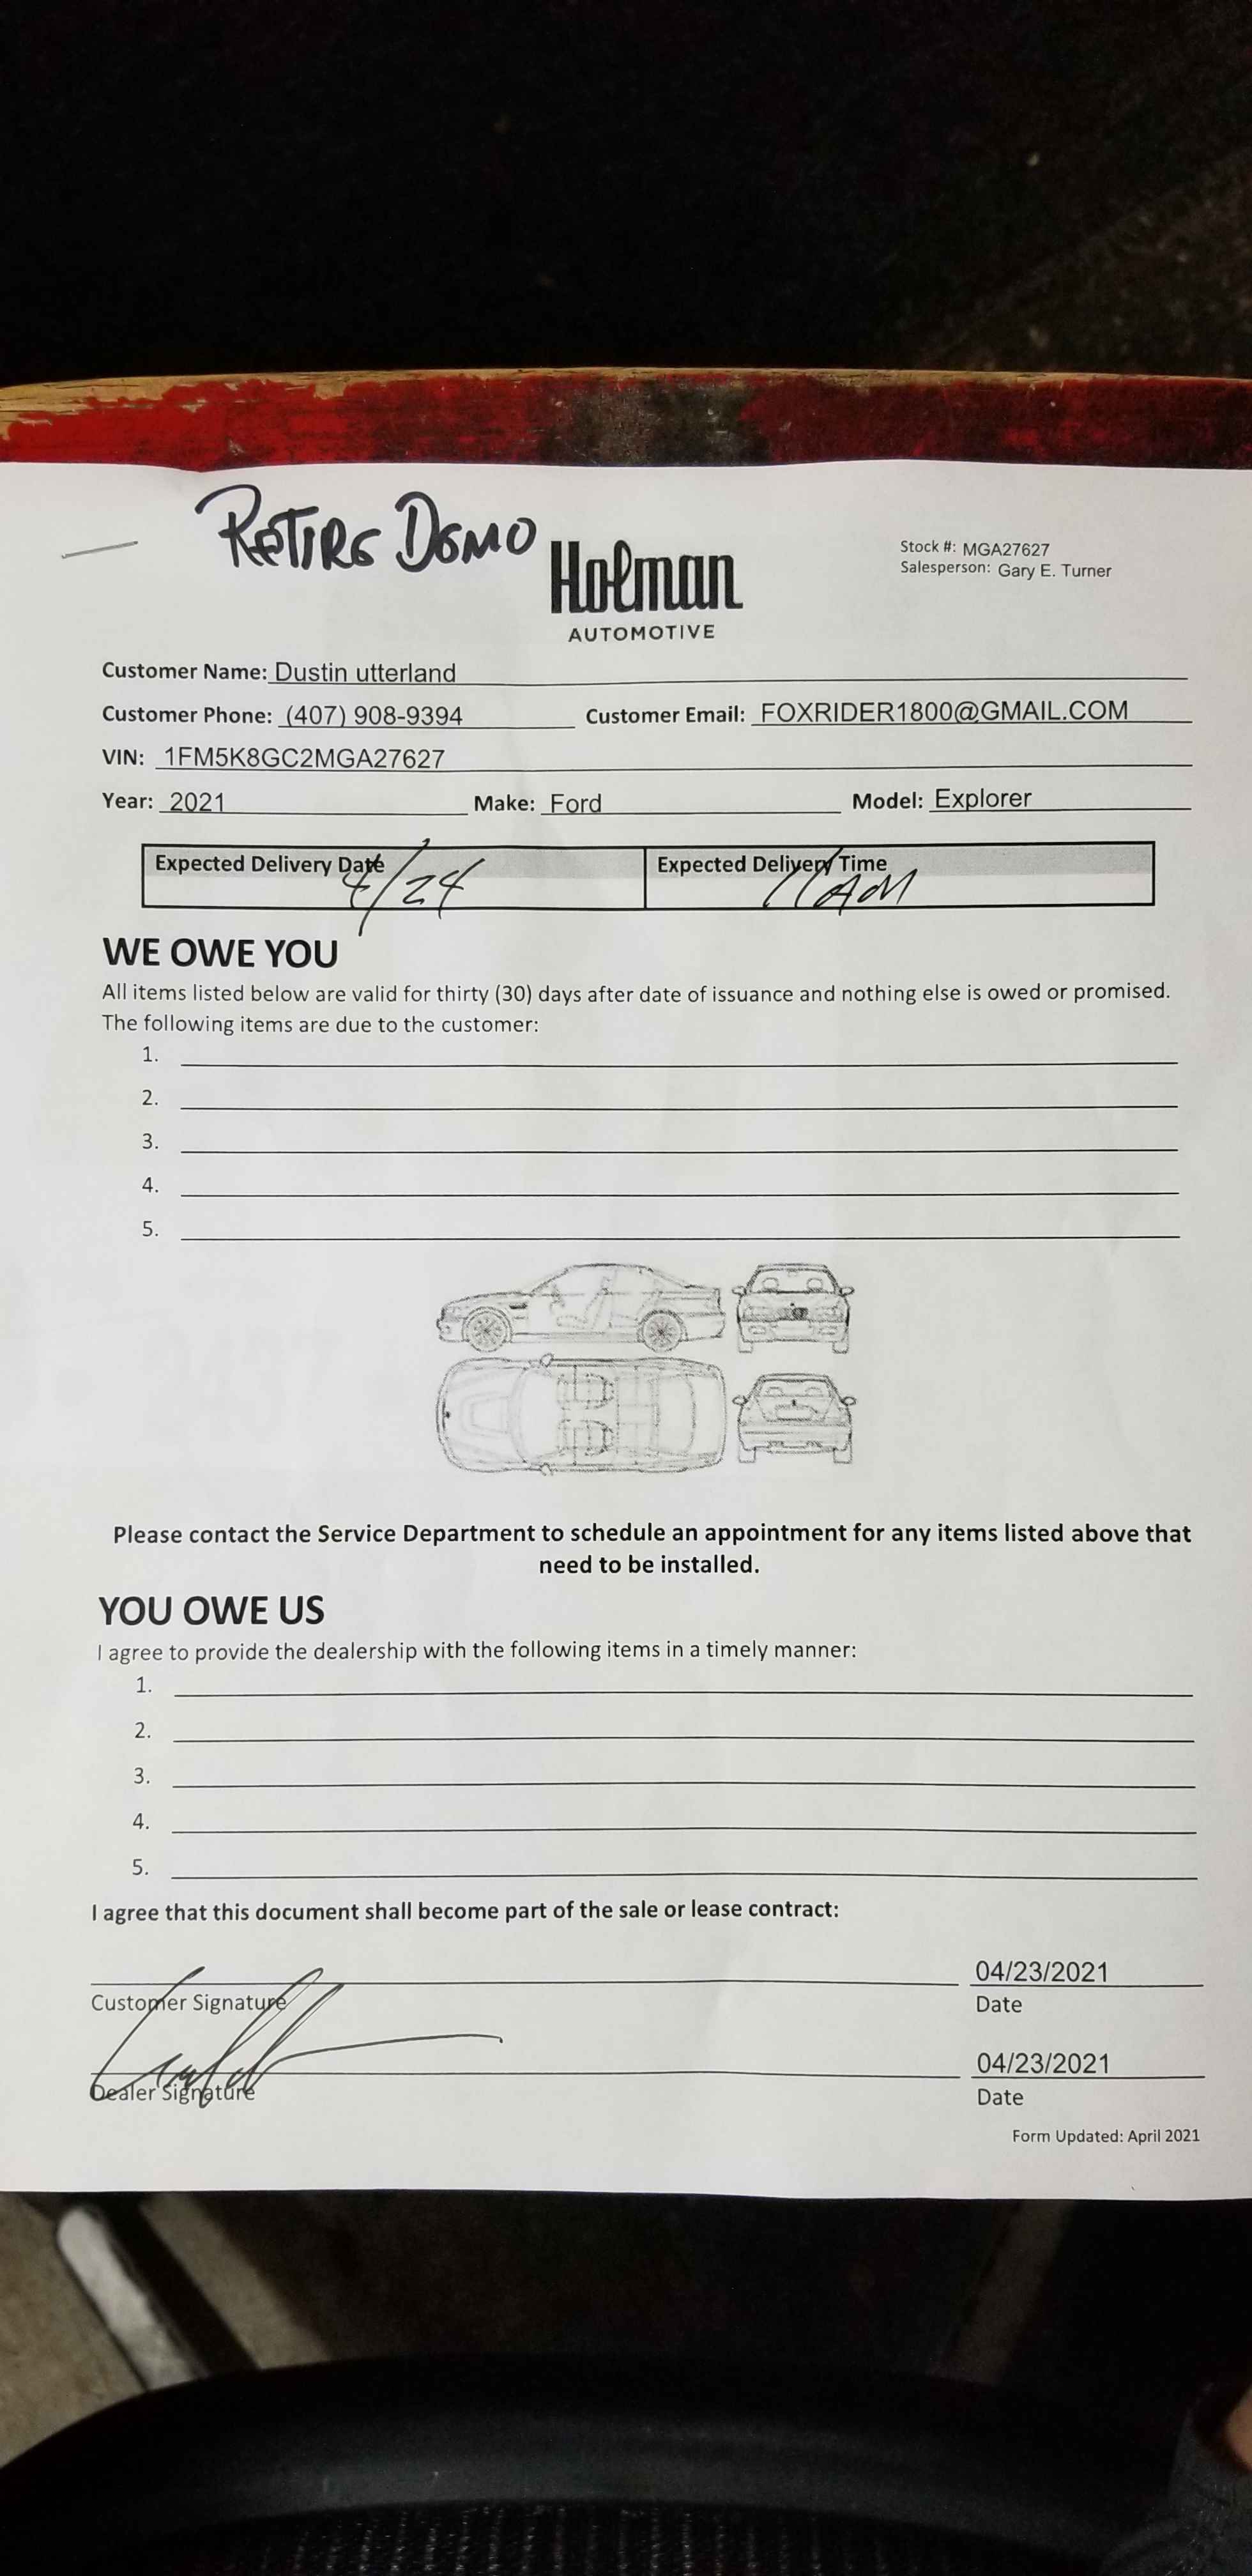 RETIRE DEMO
Holman
AUTOMOTIVE
Stock #: MGA27627
Salesperson: Gary E. Turner
Customer Name: Dustin utterland
Customer Phone: (407) 908-9394 Customer Email: FOXRIDER1800@GMAIL.COM
VIN: 1FM5K8GC2MGA27627
Year: 2021 Make: Ford Model: Explorer
Expected Delivery Date 4/24 Expected Delivery Time 11AM
WE OWE YOU
All items listed below are valid for thirty (30) days after date of issuance and nothing else is owed or promised.
The following items are due to the customer:
1.
2.
3.
4.
5.
Please contact the Service Department to schedule an appointment for any items listed above that
need to be installed.
YOU OWE US
I agree to provide the dealership with the following items in a timely manner:
1.
2.
3.
4.
5.
I agree that this document shall become part of the sale or lease contract:
04/23/2021
Customer Signature Date
04/23/2021
Dealer Signature Date
Form Updated: April 2021